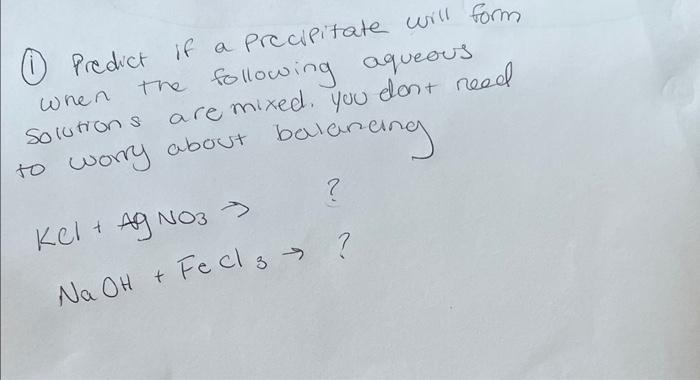 ① Predict if a precipitate will form
when the following aqueous
solutions are mixed. You dont need
to worry about balancing
KCl + AgNO3 → ?
NaOH + FeCl3 → ?